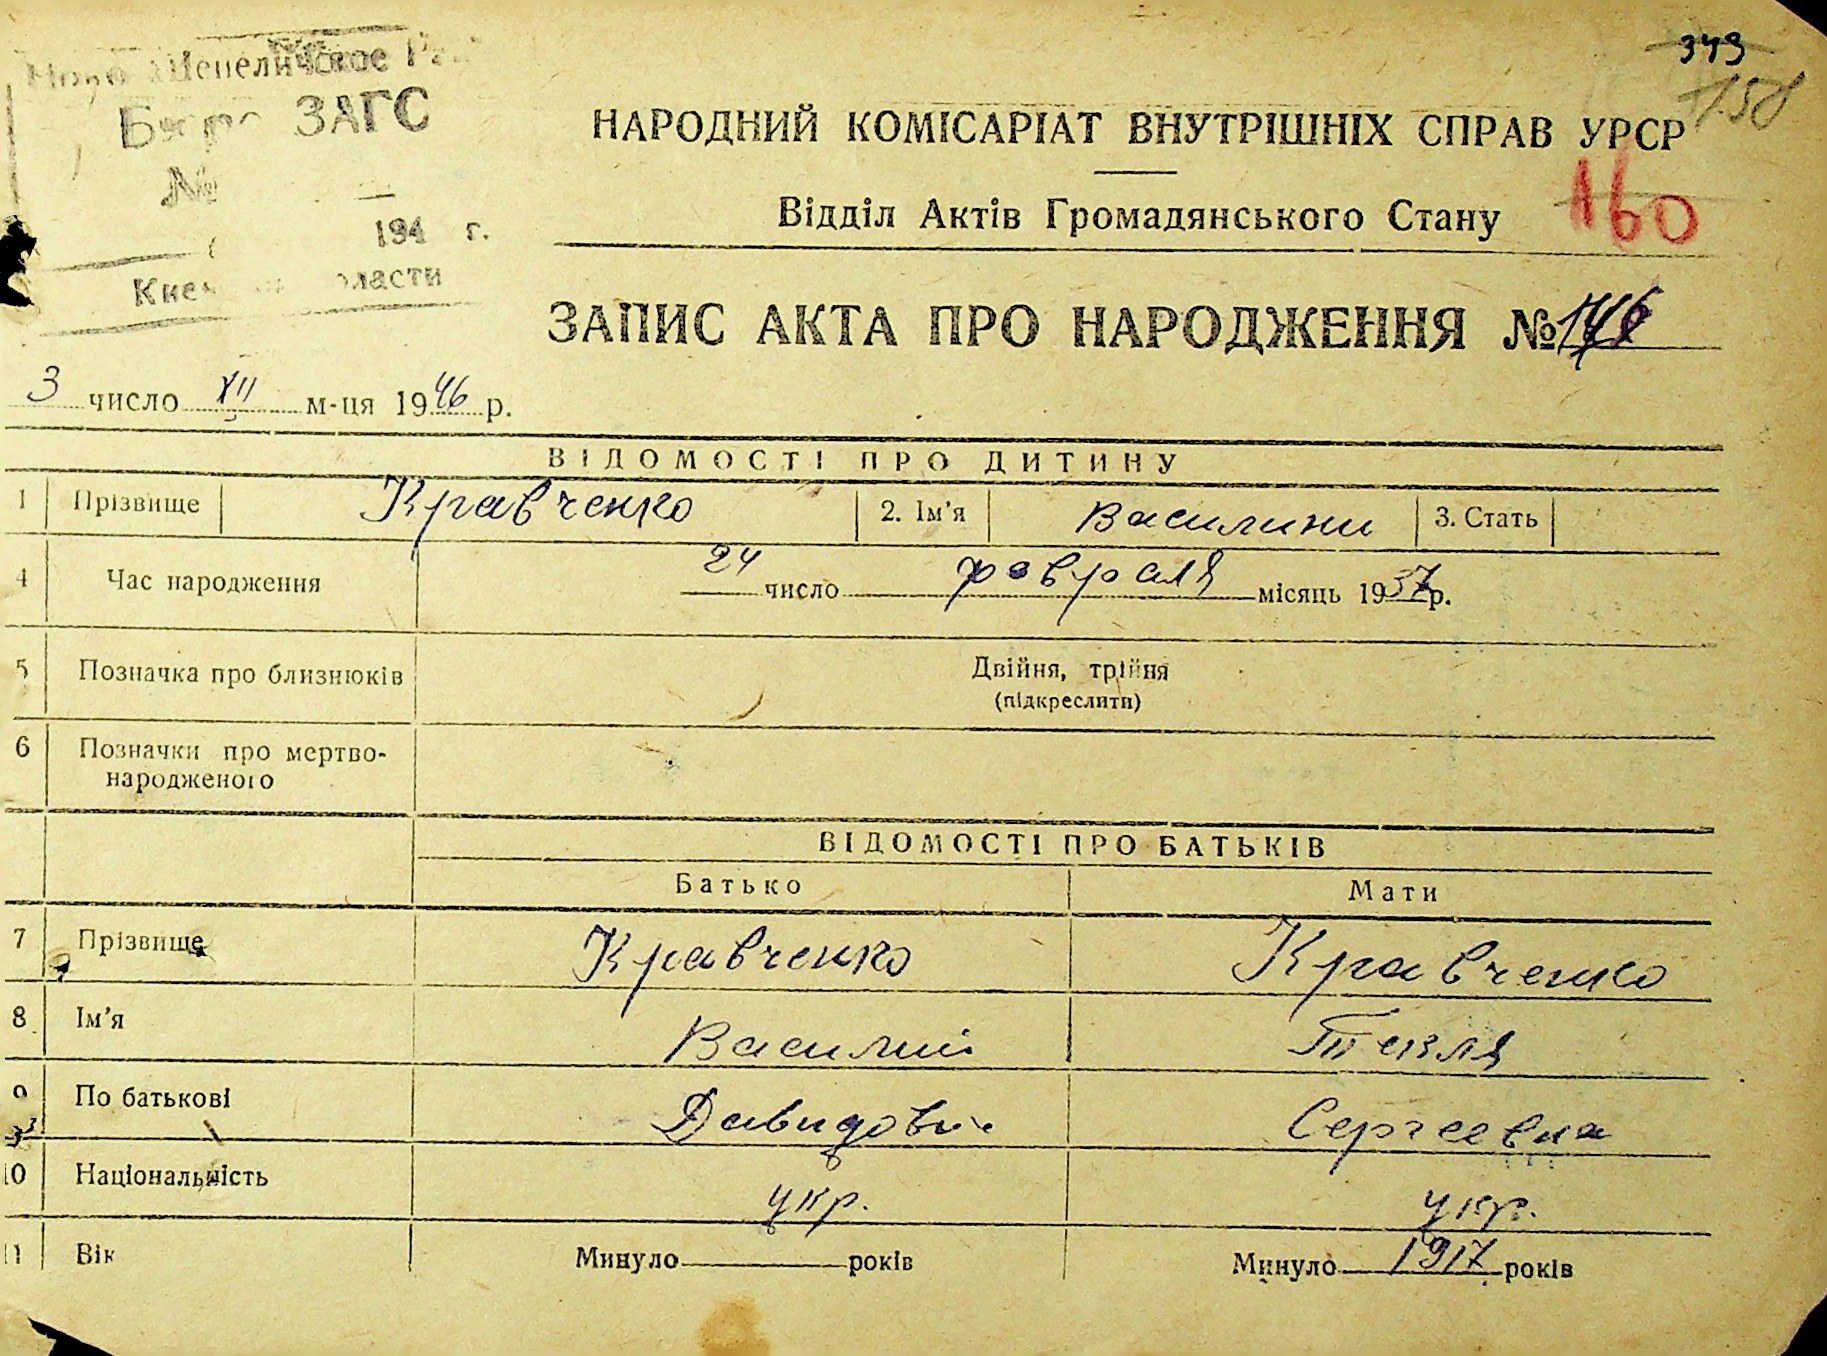 349
158
Бюро ЗАГС
№
194 г.
НАРОДНИЙ КОМІСАРІАТ ВНУТРІШНІХ СПРАВ УРСР
Відділ Актів Громадянського Стану
160
ЗАПИС АКТА ПРО НАРОДЖЕННЯ №
3 число XII м-ця 1946 р.
ВІДОМОСТІ ПРО ДИТИНУ
1 Прізвище Кравченко 2. Ім'я Василини 3. Стать
4 Час народження 24 число февраля місяць 1937р.
5 Позначка про близнюків Двійня, трійня
(підкреслити)
6 Позначки про мертво-
народженого
ВІДОМОСТІ ПРО БАТЬКІВ
Батько Мати
7 Прізвище Кравченко Кравченко
8 Ім'я Василий Текля
9 По батькові Давидович Сергеевна
10 Національність укр. укр.
11 Вік Минуло років Минуло 1917 років